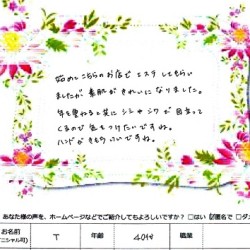 始めてこちらのお店でエステしてもらい
ましたが素肌がきれいになりました。
年を重ねると共にシミやシワが目立って
くるので気をつけたいですね。
ハンドがきもちいいですね。
あなた様の声を、ホームページなどでご紹介してもよろしいですか？ □はい ☑匿名で □ダ
お名前 T 年齢 40代 職業
ニシャル可)